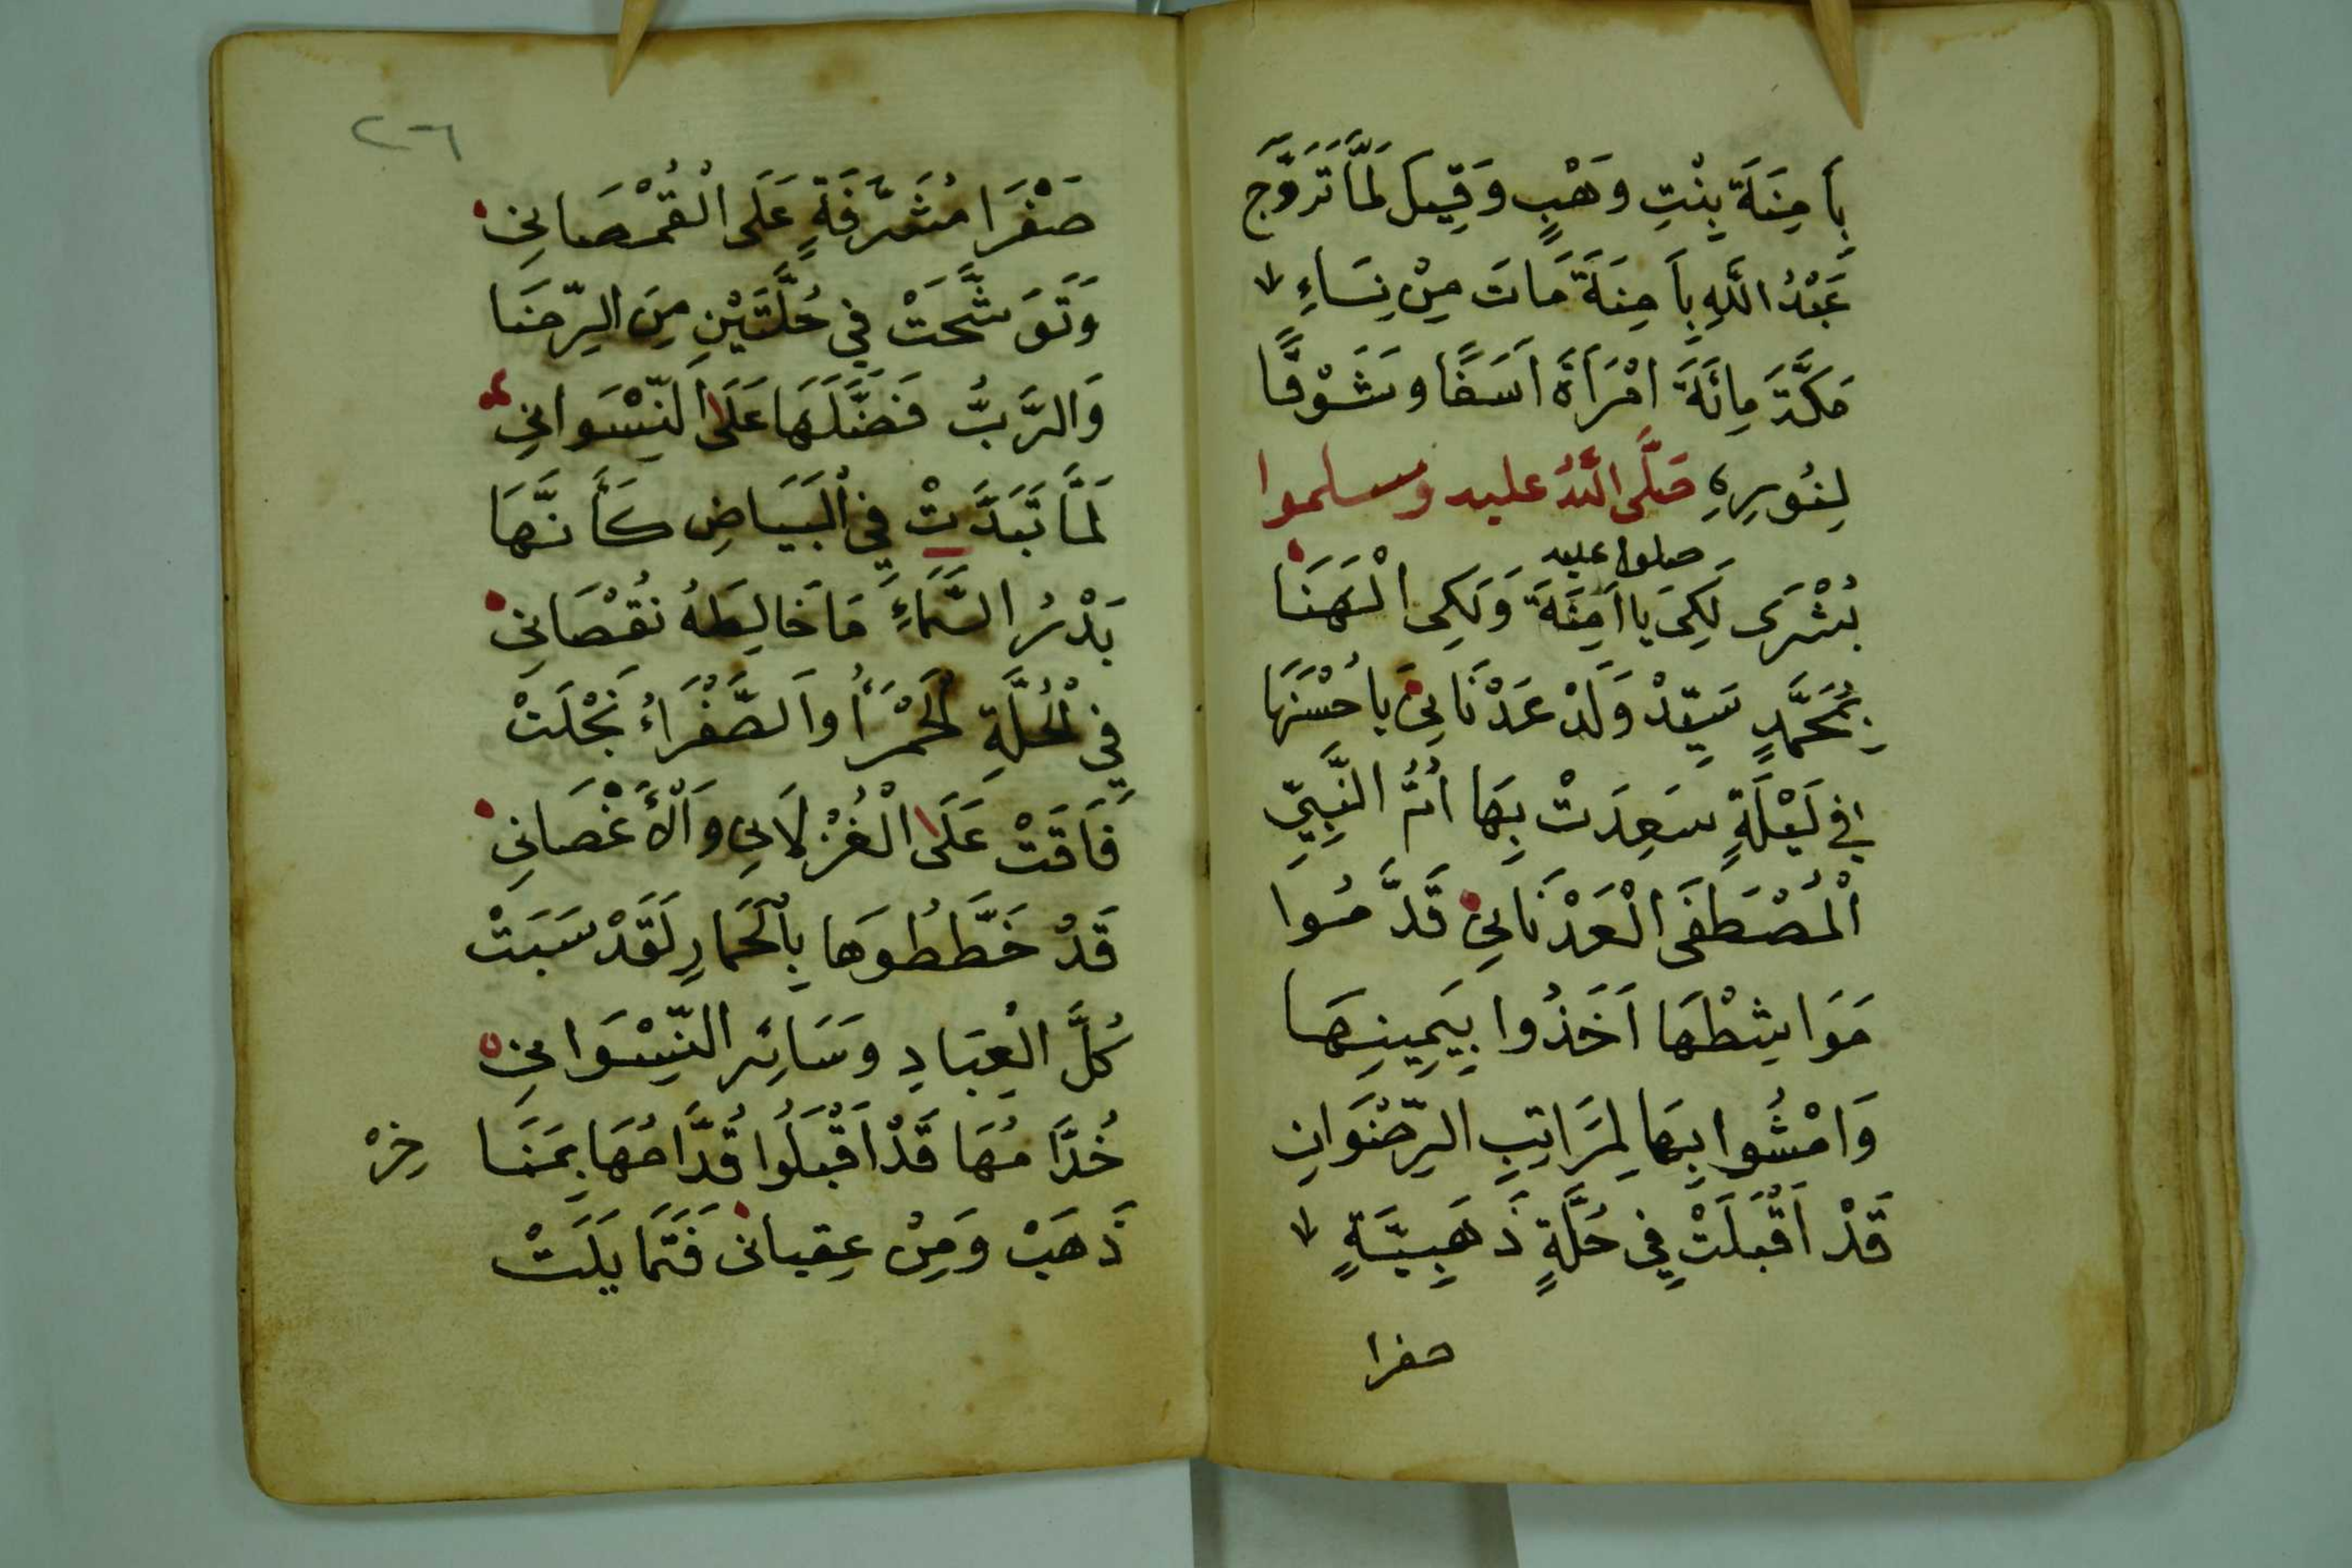 بِأَمِنَةَ بِنْتِ وَهْبٍ وَقِيلَ لَمَّا تَزَوَّجَ
عَبْدُ اللَّهِ بِآمِنَةَ مَاتَ مِنْ نِسَاءِ
مَكَّةَ مِائَةَ امْرَأَةَ اَسَفًا وشَوْقًا
لِنُورِهِ صَلَّى اللَّهُ عليه وسلموا
صلوا عليه
بُشْرَى لَكِىَ يا اَمِنَةَ وَلَكِى الْهَنَا
بِمُحَمَّدٍ سَيِّدْ وَلَدْ عَدْنَانِىَ يا حُسْنَهَا
فِي لَيْلَةٍ سَعِدَتْ بِهَا اُمُّ النَّبِيِّ
الْمُصْطَفَى الْعَدْنَانِى قَدَّمُوا
مَوَاشِطْهَا اَخَذُوا بِيَمِينِهَا
وَامْشُوا بِهَا لِمَرَاتِبِ الرِّضْوَانِ
قَدْ اَقْبَلَتْ فِي حُلَّةٍ ذَهَبِيَّةٍ
صفرا
٢٦
صَفْرَا مُشَرَّفَةٍ عَلَى الْقُمْصَانِي
وَتَوَشَّحَتْ فِي حُلَّتَيْنِ مِنَ الرِّضَا
وَالرَّبُّ فَضَّلَهَا عَلَى النِّسْوَانِي
لَمَّا تَبَدَّتْ فِي الْبَيَاضِ كَأَنَّهَا
بَدْرُ السَّمَاءِ مَا خَالِطَهُ نُقْصَانِي
فِي الْحُلَّةِ الْحَمْرَأُ وَالصَّفْرَاءُ نَجْلَتْ
فَاقَتْ عَلَى الْغُزْلَانِي وَالْأَغْصَانِي
قَدْ خَطَّطُوهَا بِالْخَمَارِ لَقَدْ سَبَتْ
كُلَّ الْعِبَادِ وَسَائِرِ النِّسْوَانِي
خُدَّامُهَا قَدْ اَقْبَلُوا قُدَّامُهَا بِمَنَا
خِرْ
ذَهَبْ وَمِنْ عِقيانى فَتَمَايَلَتْ